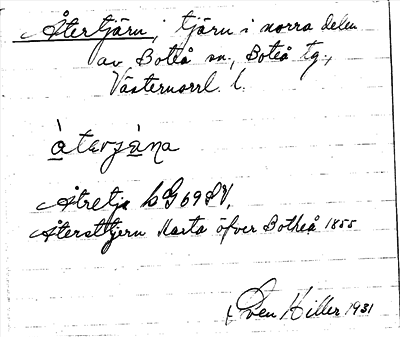 Återtjärn, tjärn i norra delen
av Boteå sn, Boteå tg.,
Västernorrl. l.
àterjä̀na
Åtretje LG 69
Återsttjern Karta öfver Botheå 1855
Sven Killer 1931